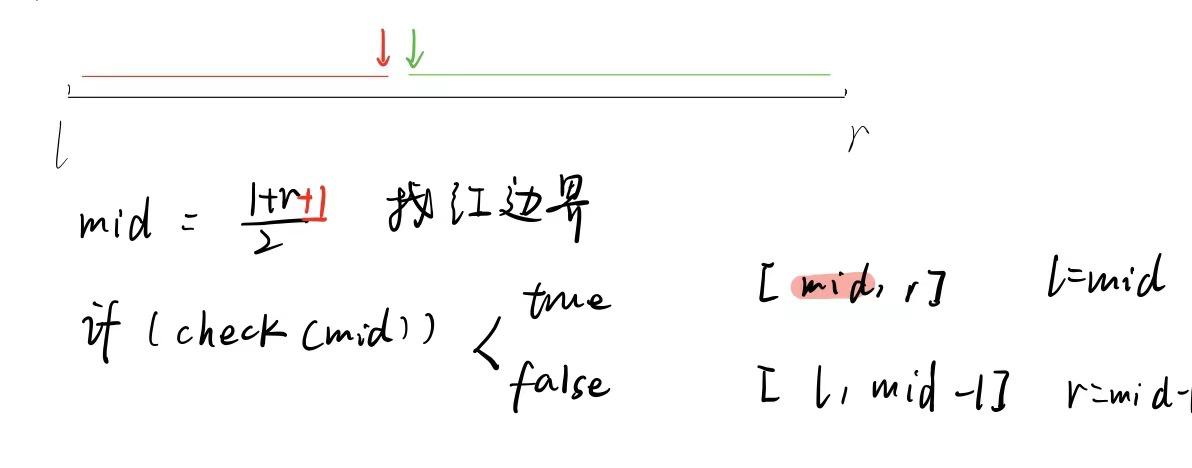 l r
mid = l+r+1 / 2 找红边界
if (check(mid)) true [mid, r] l=mid
false [l, mid-1] r=mid-1